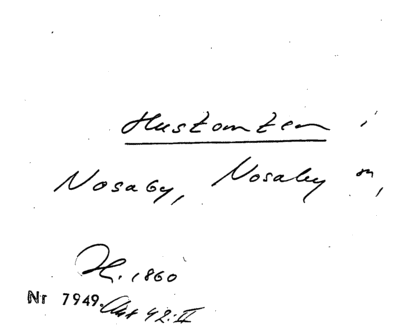 Hustomten i
Nosaby, Nosaby sn,
H. 1860
Nr 7949.